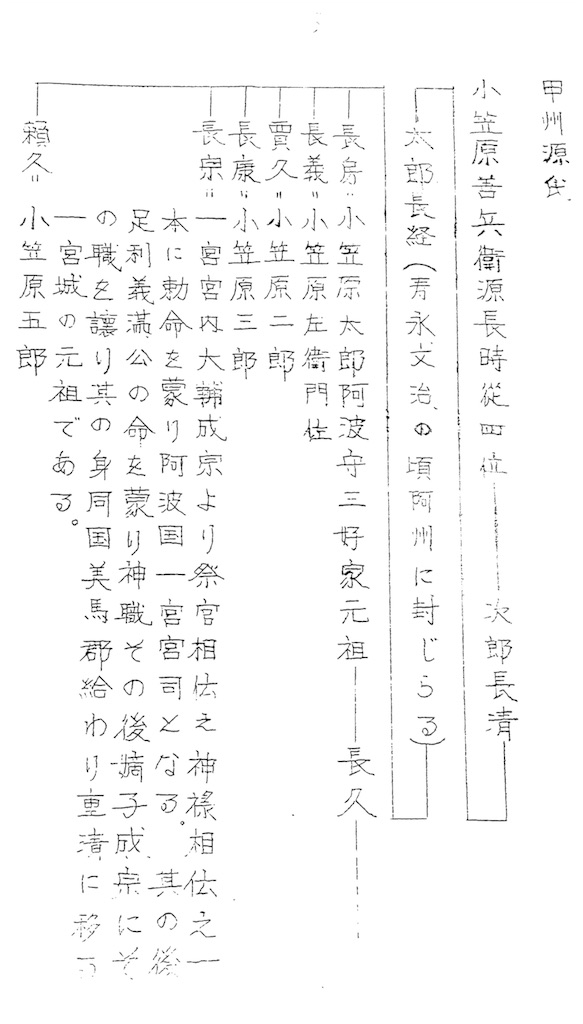 甲州源氏
小笠原善兵衛源長時従四位
次郎長清
太郎長経(寿永文治の頃阿州に封じらる)
長房=小笠原太郎阿波守三好家元祖
長久
長義=小笠原左衛門佐
賈久=小笠原二郎
長康=小笠原三郎
長宗=一宮宮内大輔成宗より祭官相伝え神禄相伝え一
本に勅命を蒙り阿波国一宮宮司となる。其の後
足利義満公の命を蒙り神職その後嫡子成宗にそ
の職を譲り其の身同国美馬郡給わり重清に移る
一宮城の元祖である。
頼久=小笠原五郎